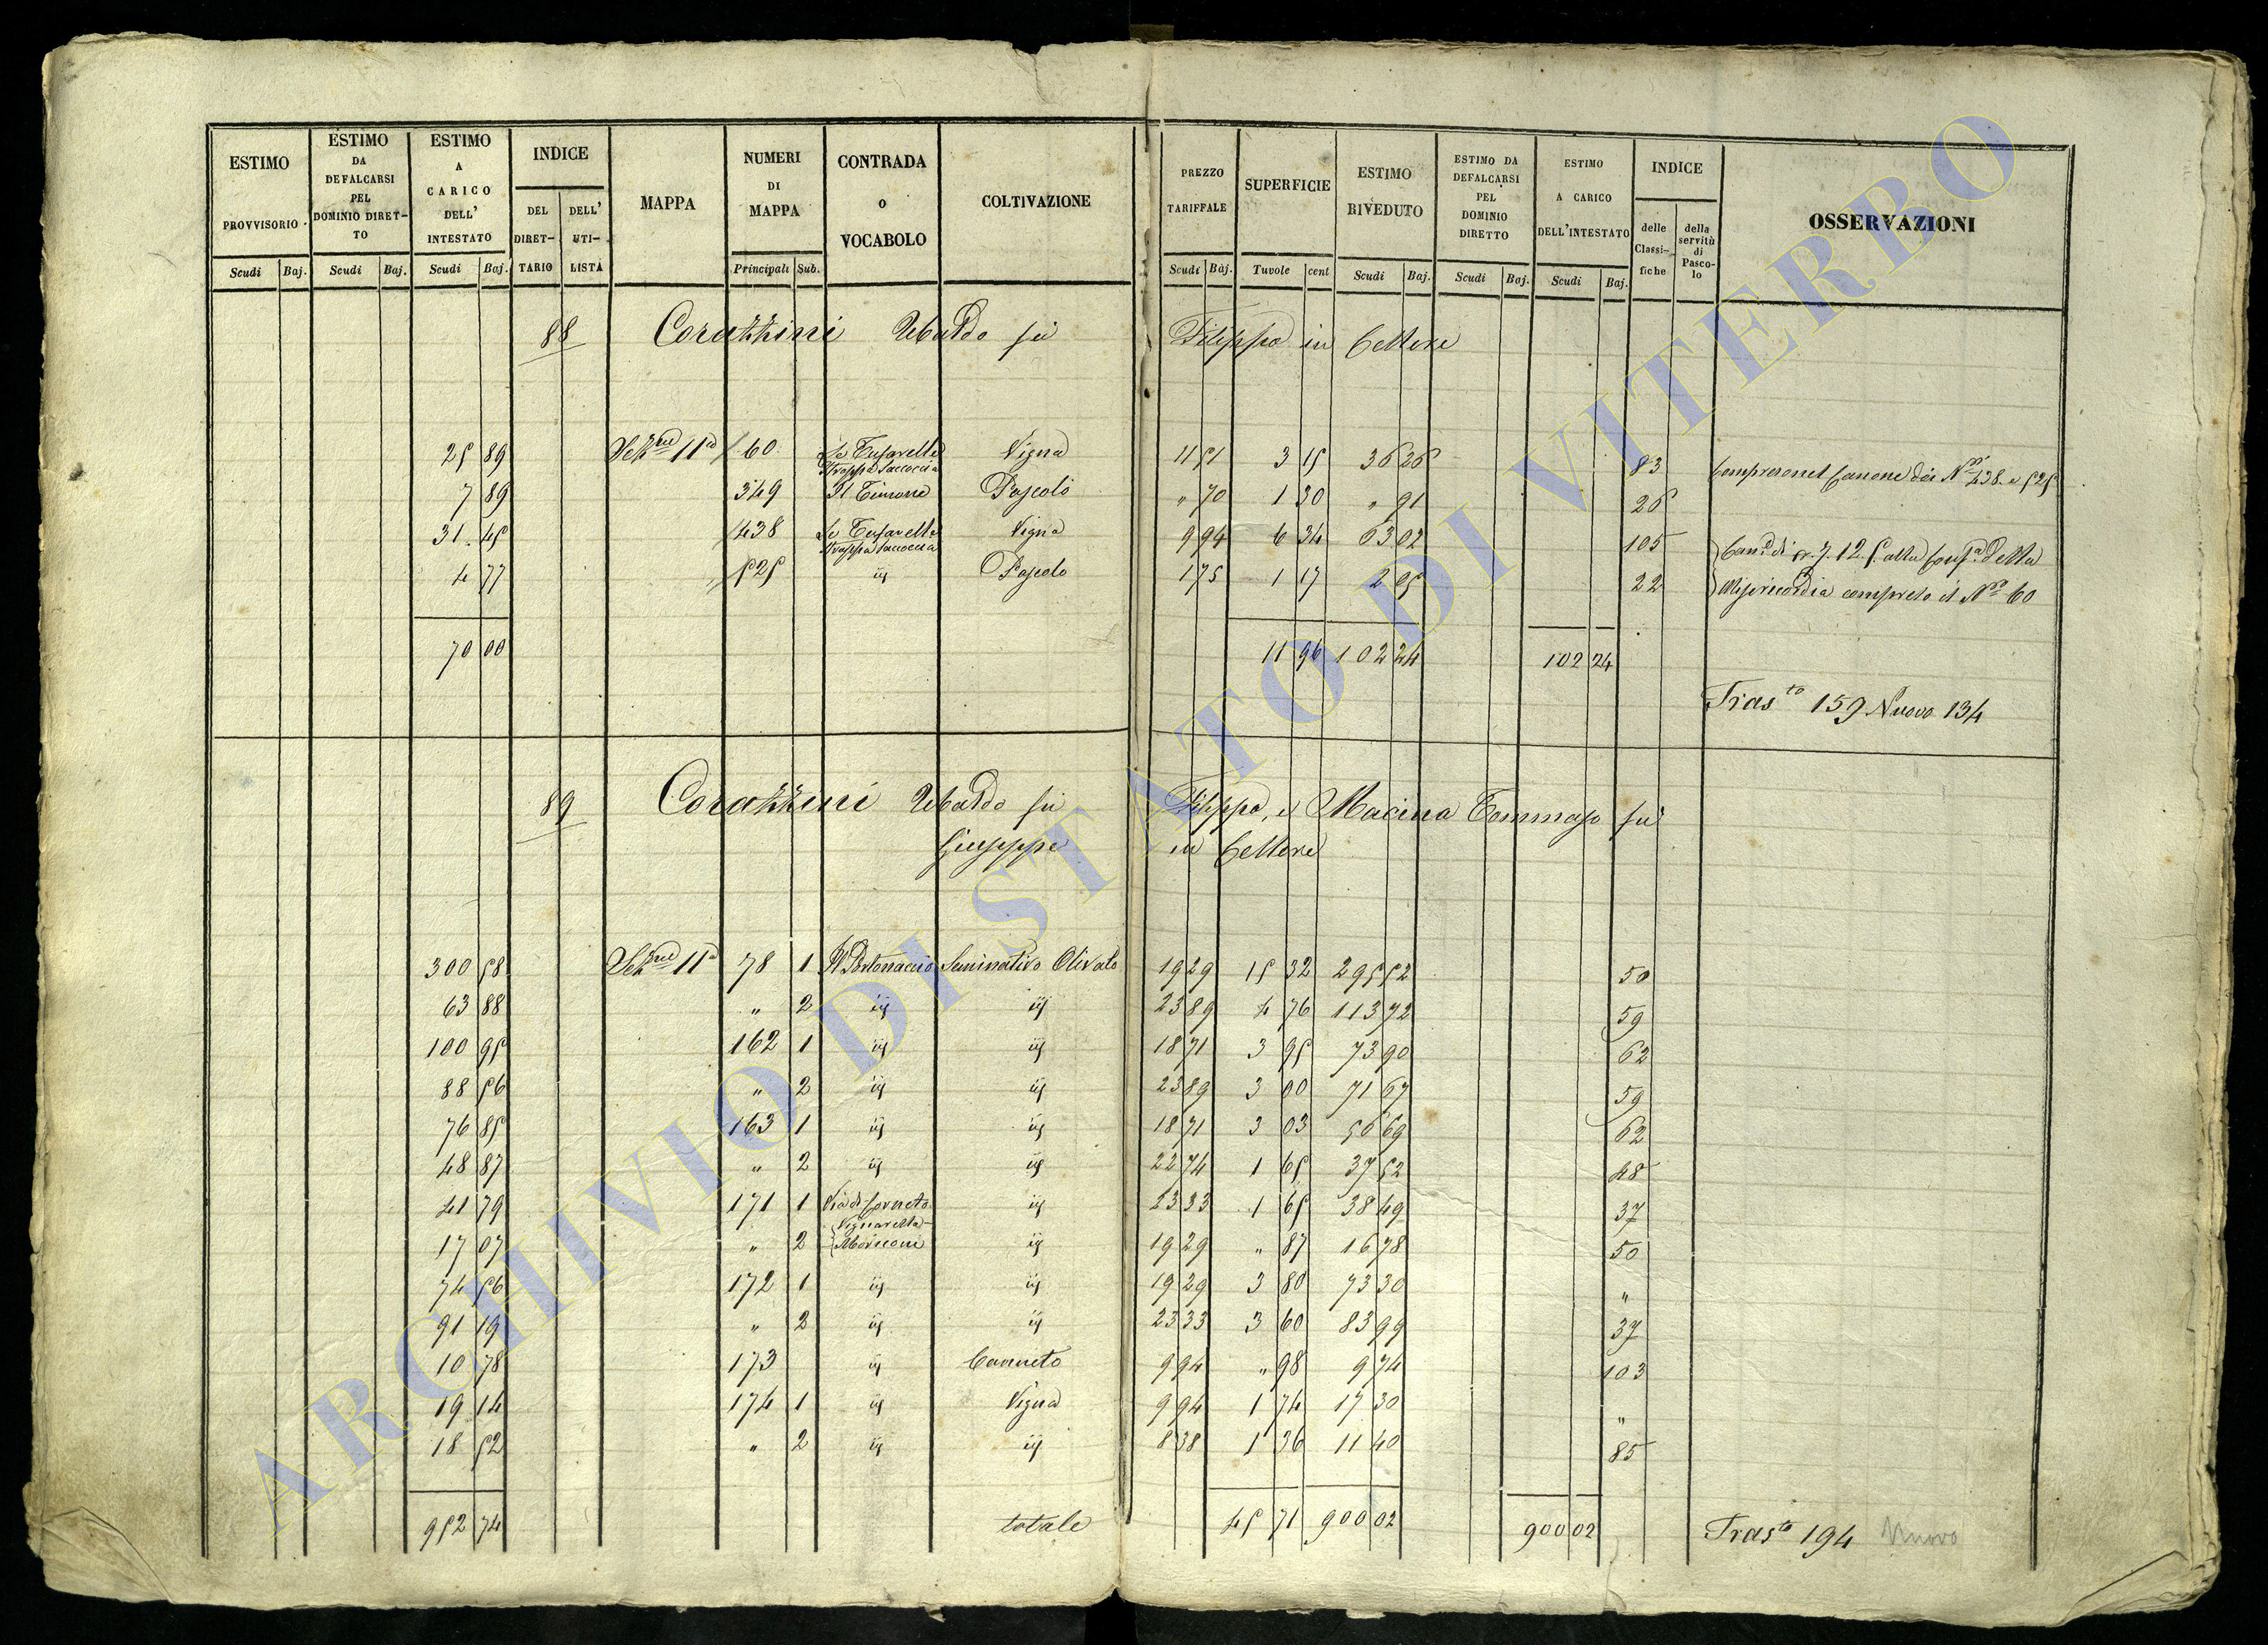 ESTIMO PROVVISORIO Scudi Baj.
ESTIMO DA DEFALCARSI PEL DOMINIO DIRETTO Scudi Baj.
ESTIMO A CARICO DELL' INTESTATO Scudi Baj.
INDICE DEL DIRETTARIO DELL' UTILISTA
MAPPA
NUMERI DI MAPPA Principali Sub.
CONTRADA O VOCABOLO
COLTIVAZIONE
PREZZO TARIFFALE Scudi Baj.
SUPERFICIE Tavole cent
ESTIMO RIVEDUTO Scudi Baj.
ESTIMO DA DEFALCARSI PEL DOMINIO DIRETTO Scudi Baj.
ESTIMO A CARICO DELL'INTESTATO Scudi Baj.
INDICE delle Classifiche della servitù di Pascolo
OSSERVAZIONI
88 Corazzini Ubaldo fù Filippo in Cellere
25 89 Sezne 11a 60 Le Tufarelle Strappa Saccoccia Vigna 11 51 3 15 36 26 83 Compreso nel Canone dei Nri 438 e 525
7 89 349 Il Timone Pascolo " 70 1 30 " 91 26
31 45 438 Le Tufarelle Strappa Saccoccia Vigna 9 94 6 34 63 02 105
4 77 525 iij Pascolo 1 75 1 17 2 05 22 Misericordia compreso il No 60
70 00 11 96 102 24 102 24
Trasto 159 Nuovo 134
89 Corazzini Ubaldo fù Filippo, e Macina Tommaso fù
Giuseppe in Cellere
300 58 Sezne 11a 78 1 Il Portonaccio Seminativo Olivato 19 29 15 32 295 52 50
63 88 " 2 iij iij 23 89 4 76 113 72 59
100 95 162 1 iij iij 18 71 3 95 73 90 62
88 56 " 2 iij iij 23 89 3 00 71 67 59
76 85 163 1 iij iij 18 71 3 03 56 69 62
48 87 " 2 iij iij 22 74 1 65 37 52 48
41 79 171 1 Via di Corneto iij 23 33 1 65 38 49 37
17 07 " 2 Vignarella iij 19 29 " 87 16 78 50
74 56 172 1 iij iij 19 29 3 80 73 30 "
91 19 " 2 iij iij 23 33 3 60 83 99 37
10 78 173 iij Canneto 9 94 " 98 9 74 103
19 14 174 1 iij Vigna 9 94 1 74 17 30 "
18 52 " 2 iij iij 8 38 1 36 11 40 85
952 74 totale 45 71 900 02 900 02 Trasto 194 Nuovo
ARCHIVIO DI STATO DI VITERBO